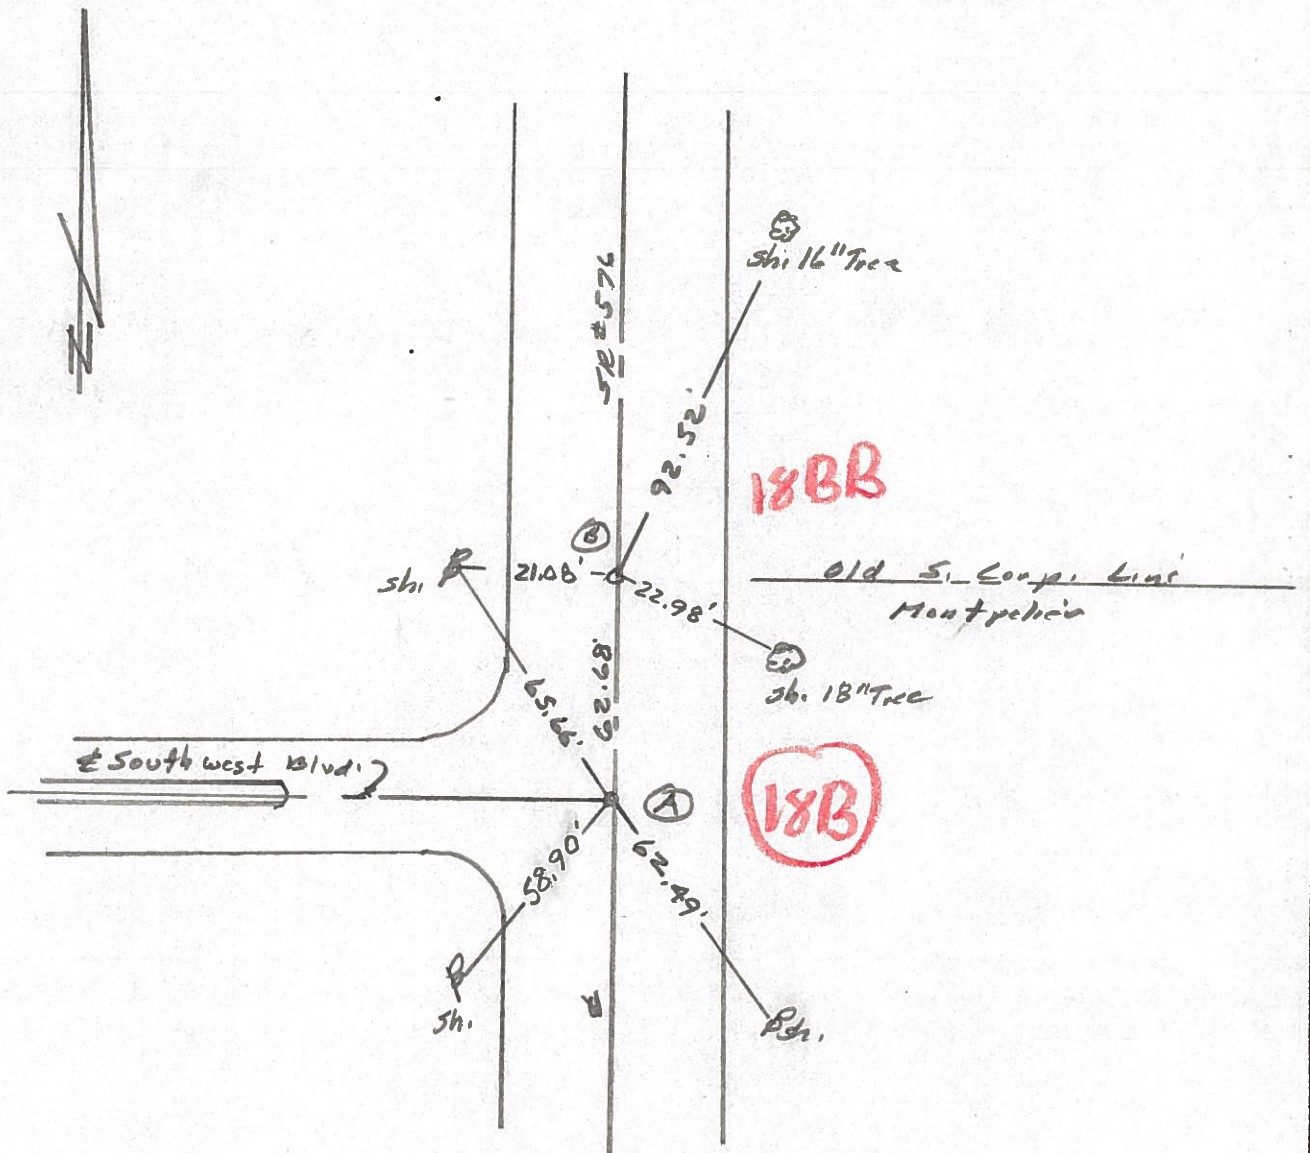 N
SR #576
sh. 16" Tree
92.52'
18BB
B
sh.
21.08'
22.98'
Old S. Corp. Line
Montpelier
sh. 18" Tree
62.68'
65.66'
℄ Southwest Blvd.
A
18B
58.90'
62.49'
sh.
℄
sh.